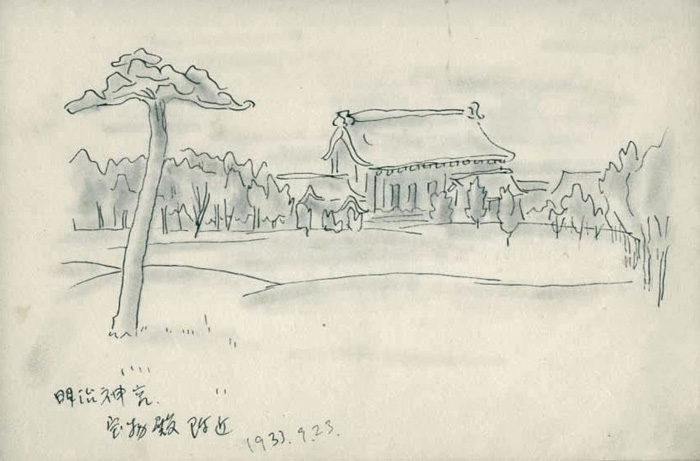 明治神宮.
宝物殿 附近
1933.9.23.